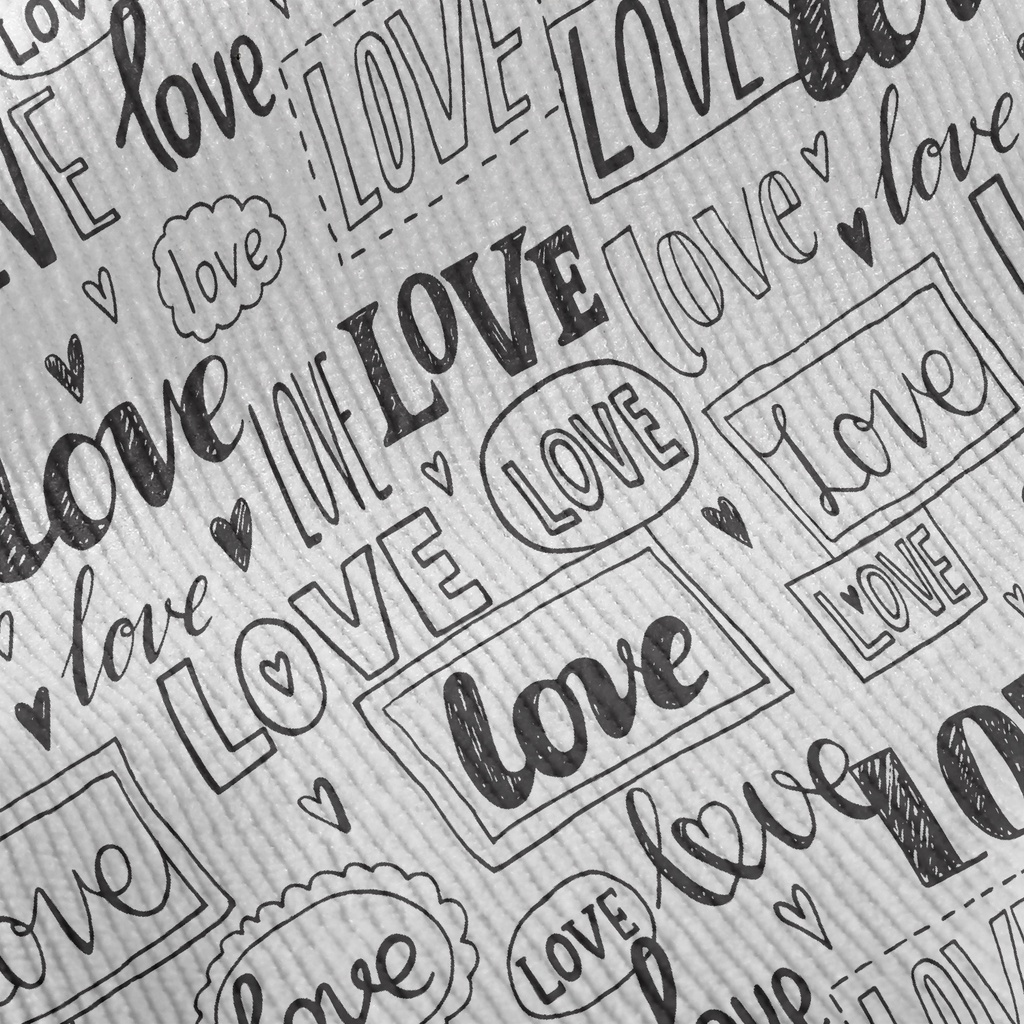 LOV
love
LOVE
LOVE
lov
VE
love
love
love
LOVE
Love
love
LOVE
LOVE
LOVE
love
LOVE
love
LO
love
ove
love
LOVE
love
LOV